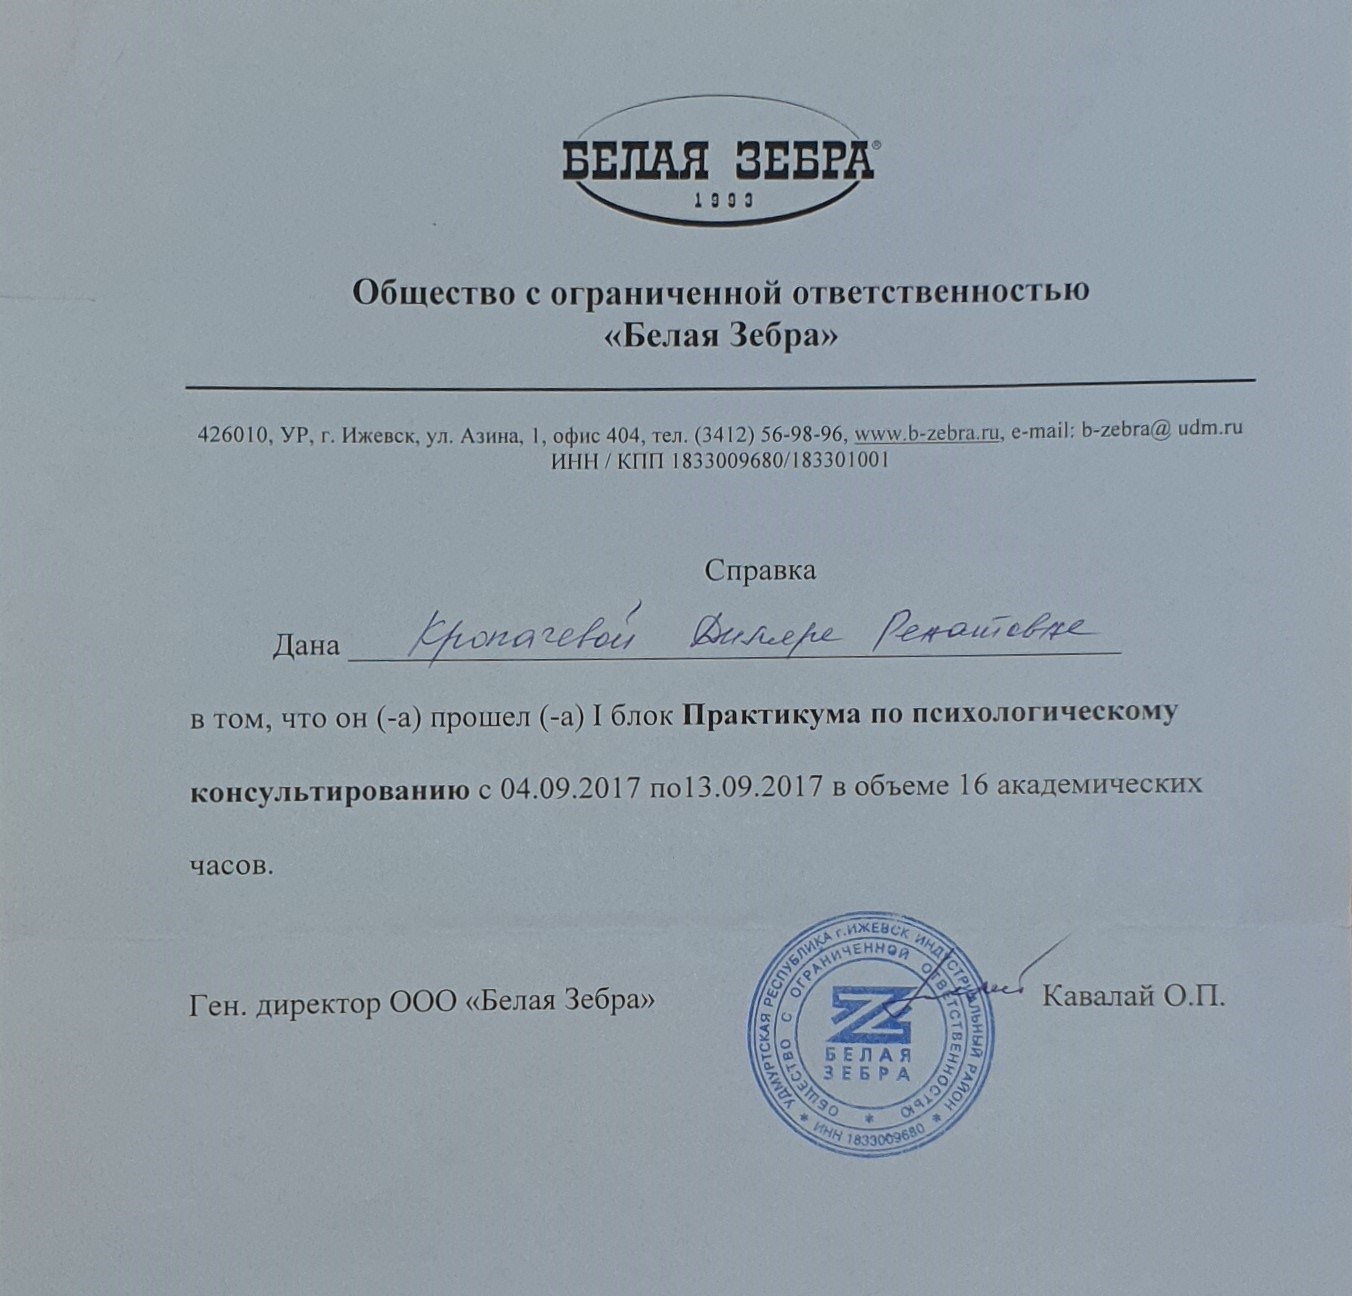 БЕЛАЯ ЗЕБРА®
1993
Общество с ограниченной ответственностью
«Белая Зебра»
426010, УР, г. Ижевск, ул. Азина, 1, офис 404, тел. (3412) 56-98-96, www.b-zebra.ru, e-mail: b-zebra@ udm.ru
ИНН / КПП 1833009680/183301001
Справка
Дана Кропачевой Диляре Ренатовне
в том, что он (-а) прошел (-а) I блок Практикума по психологическому
консультированию с 04.09.2017 по13.09.2017 в объеме 16 академических
часов.
Ген. директор ООО «Белая Зебра»
Кавалай О.П.
УДМУРТСКАЯ РЕСПУБЛИКА г.ИЖЕВСК ИНДУСТРИАЛЬНЫЙ РАЙОН
* ИНН 1833009680 *
ОБЩЕСТВО С ОГРАНИЧЕННОЙ ОТВЕТСТВЕННОСТЬЮ *
БЕЛАЯ
ЗЕБРА